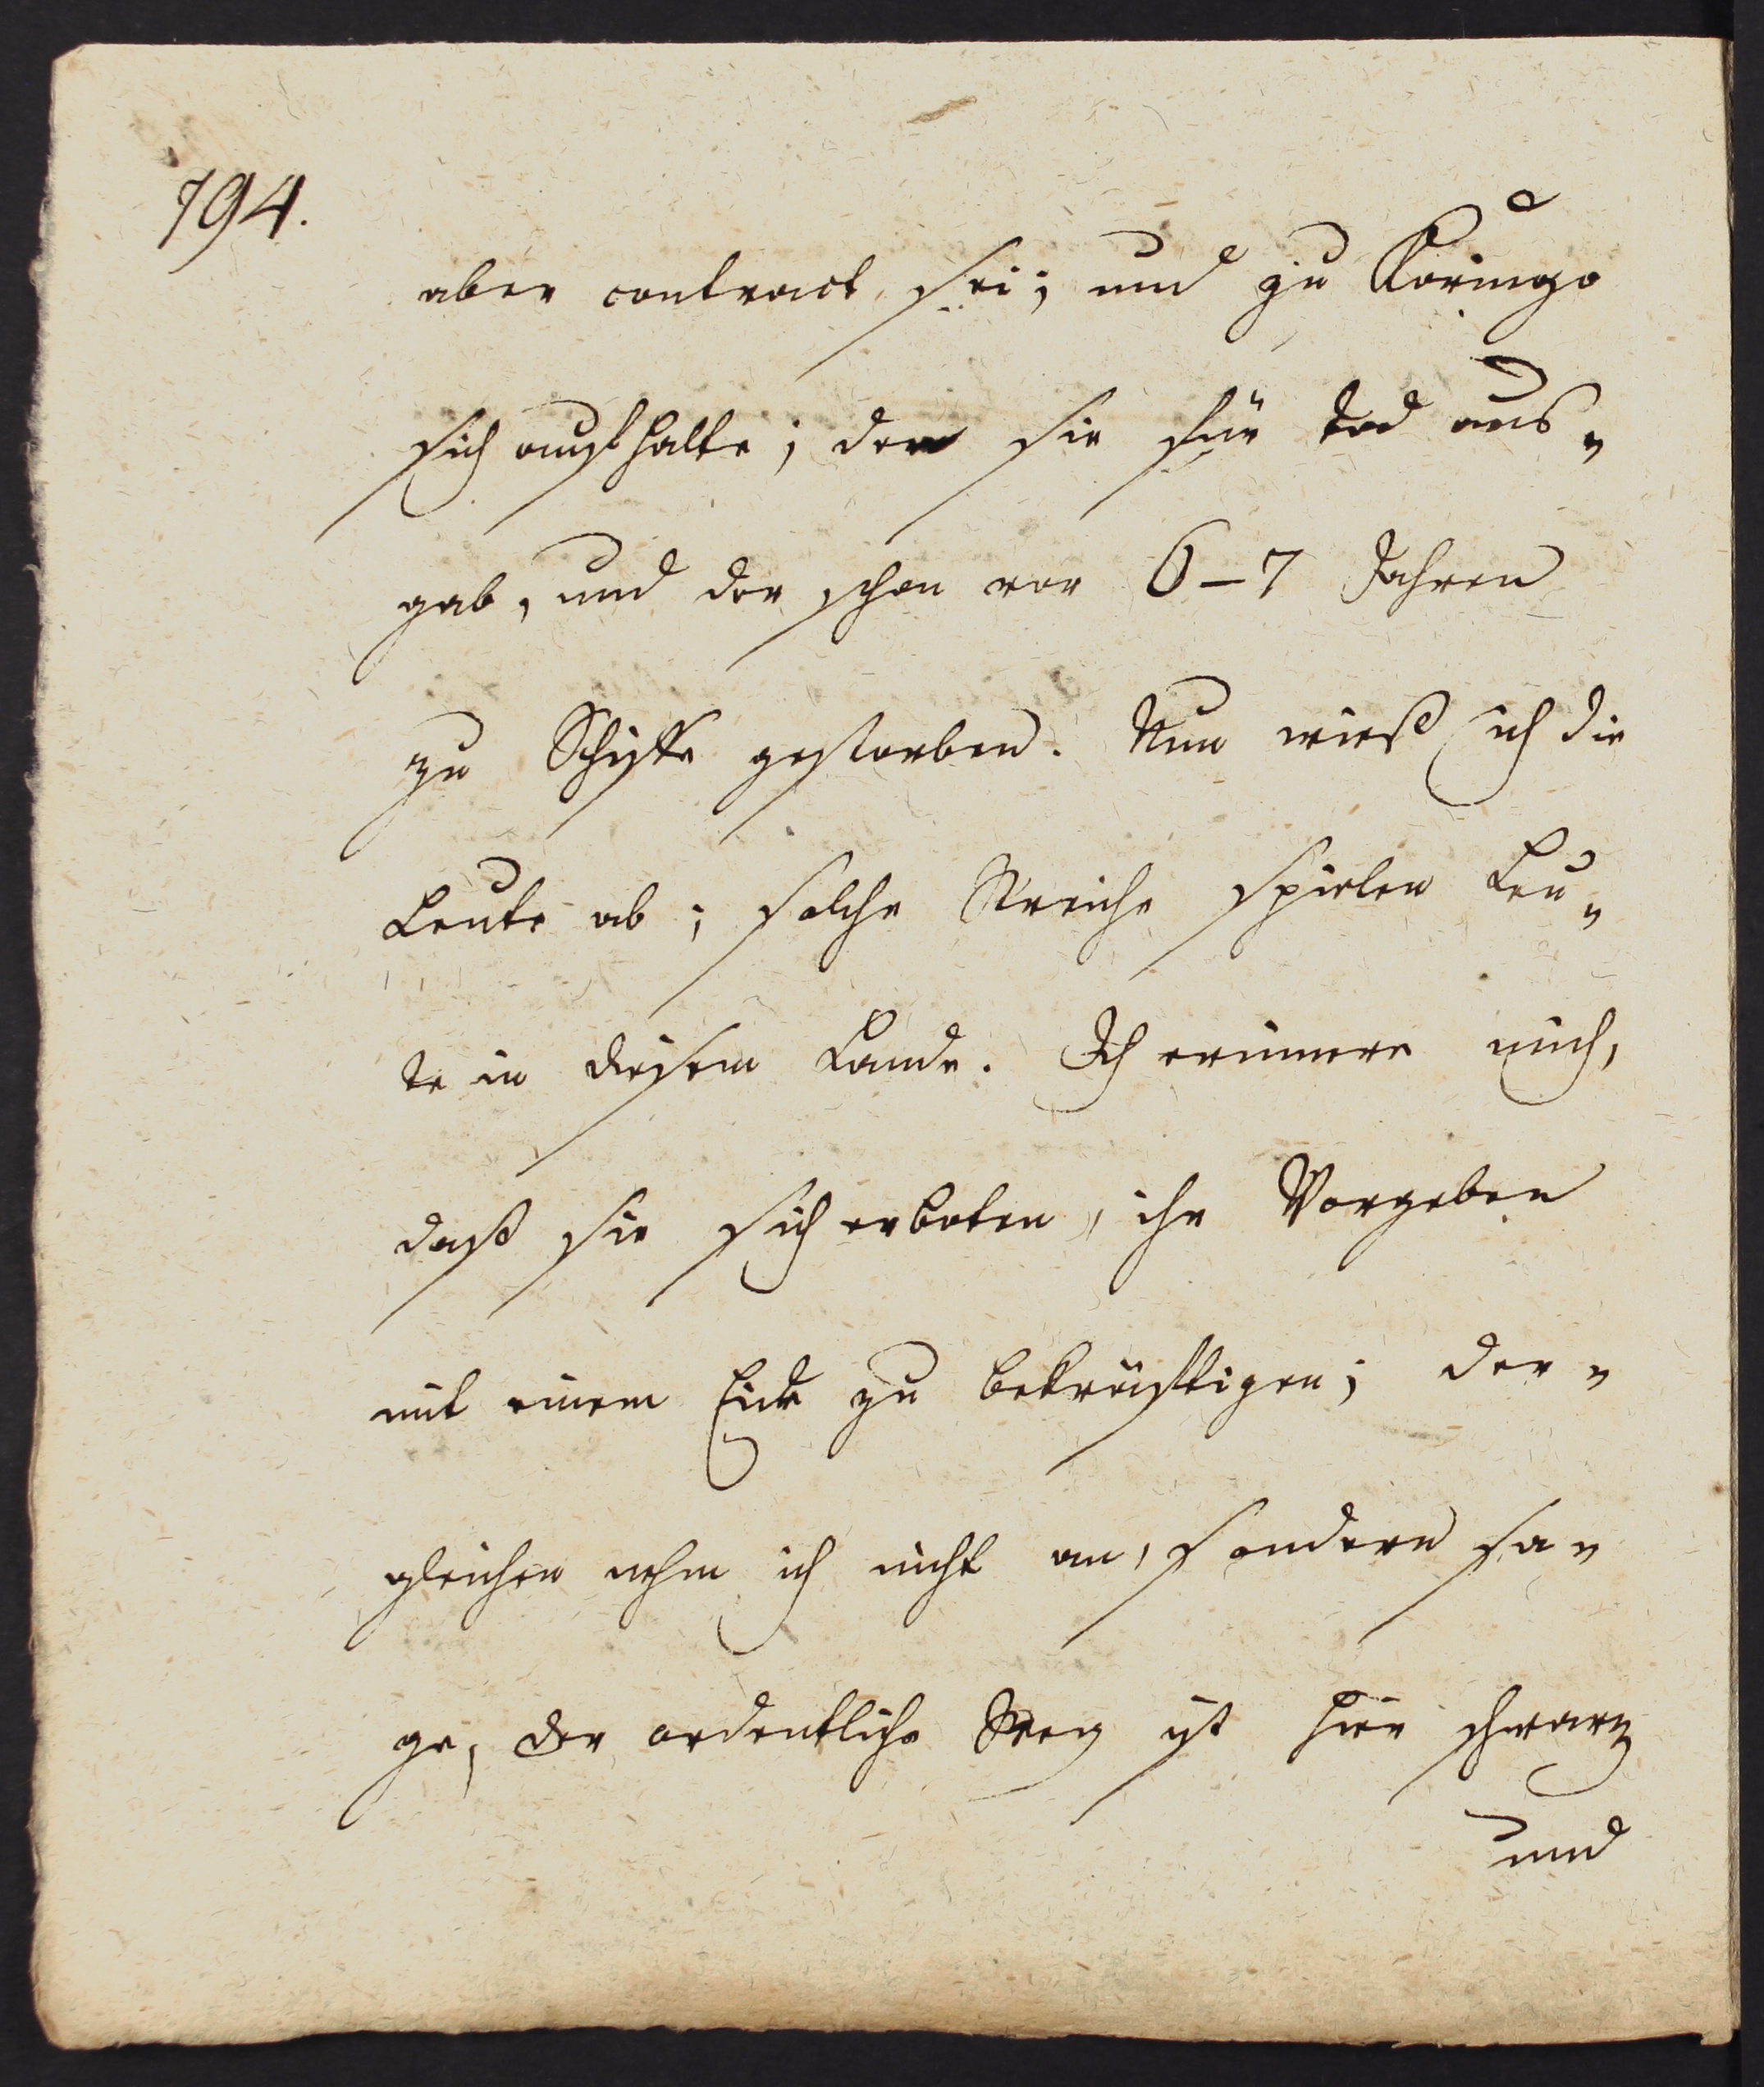 794.
aber contract sei; und zu Koringo
sich aufhalte; den sie für tod aus=
gab, und der schon vor 6–7 Jahren
zu Schiffe gestorben. Nun wieß ich die
Leute ab; solche Streiche spielen Leu=
te in diesem Lande. Ich erinnere mich,
daß sie sich erboten, ihr Vorgeben
mit einem Eide zu bekräftigen; der=
gleichen nehm ich nicht an, sondern sa=
ge, der ordentliche Weg ist hier schwarz
und